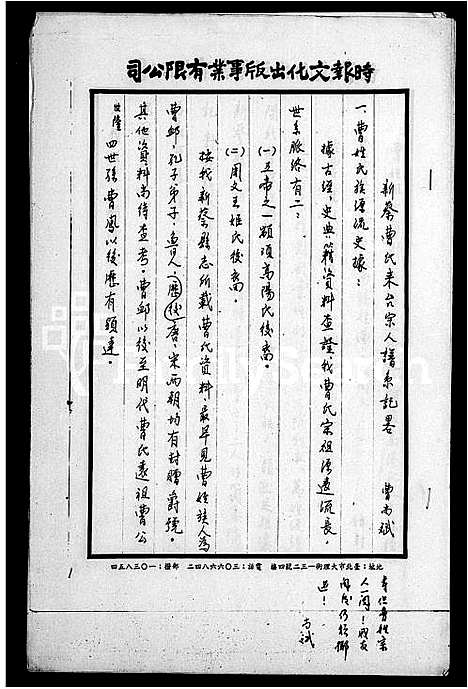 時報文化出版事業有限公司
新蔡曹氏來台宗人譜系記畧 曹尚斌
一曹姓氏族源流史據：
據古經，史典籍資料查證，我曹氏宗祖源遠流長，
世系脈絡有二：
㈠五帝之一顓頊高陽氏後裔。
㈡周文王姬氏後裔。
按我新蔡縣志所載曹氏資料，最早見曹姓族人為
曹邺，孔子弟子，魯人，歷後唐、宋兩朝均有封贈爵號。
其他資料尚待查考。曹邺以後至明代曹氏遠祖曹公
四世孫曹鳳以後歷有顯達。
地址：臺北市大理街一三二號四樓 電話：三〇六六八四二 郵撥：一〇三八五四
人一閱！
尚斌